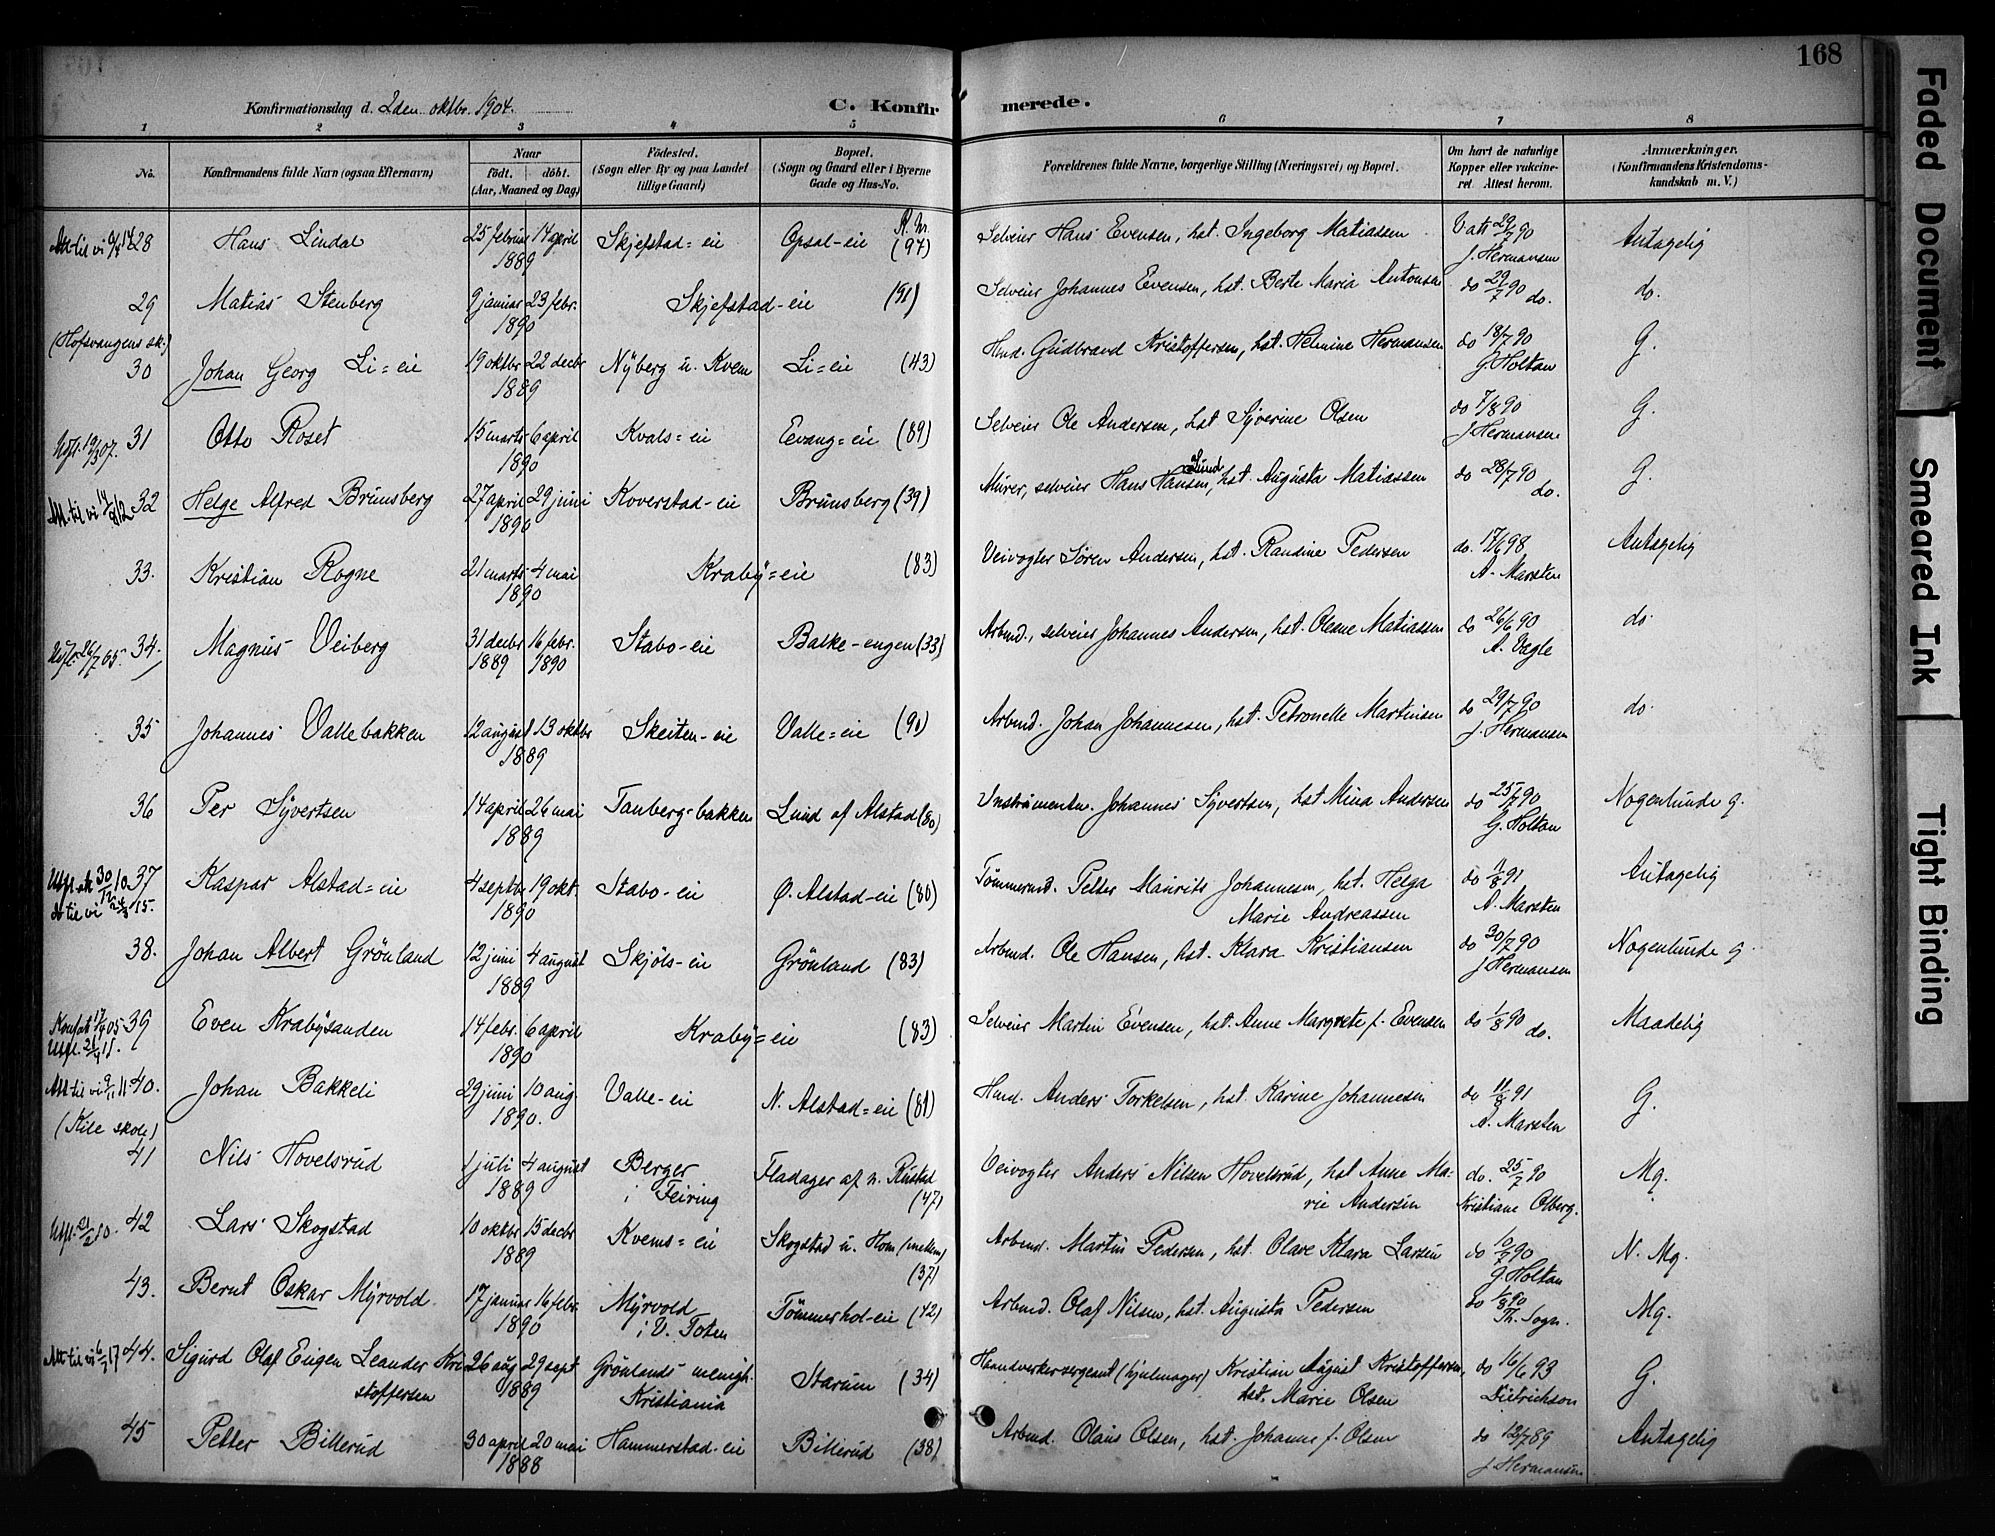 168
Konfirmationsdag d. 2den oktbr. 1904.
C. Konfirmerede.
1 2 3 4 5 6 7 8
No.
Konfirmandens fulde Navn (ogsaa Efternavn)
Naar
født. døbt.
(Aar, Maaned og Dag)
Födested.
(Sogn eller By og paa Landet
tillige Gaard)
Bopæl.
(Sogn og Gaard eller i Byerne
Gade og Hus-No.
Forældrenes fulde Navne, borgerlige Stilling (Næringsvei) og Bopæl.
Om havt de naturlige
Kopper eller vakcine-
ret Attest herom.
Anmærkninger.
(Konfirmandens Kristendoms-
kundskab m. V.)
28 Hans Lindal 25 februar 14 april Skjefstad=eie Opsal-eie (97) Selveier Hans Evensen, hst. Ingeborg Matiassen Vatt 29/7 90 Antagelig
1889 J. Hermansen
29 Matias Stenberg 9 januar 23 febr. Skjefstad-eie (91) Selveier Johannes Evensen, hst. Berte Maria Antonsen do 29/7 90 do. do.
1890
(Hofsvangens sk.)
30 Johan Georg Li=eie 19 oktbr 22 decbr Nyberg u. Kvem Li=eie (43) Hmd. Gudbrand Kristoffersen, hst. Helmine Hermansen do 18/7 90 G.
1889 G. Holtan
Utfl. 19/3 07. 31 Otto Roset 15 marts 6 april Kvals=eie Eevang=eie (89) Selveier Ole Andersen, hst Syverine Olsen do 7/8 90 G.
1890 J Hermansen
32 Helge Alfred Brunsberg 27 april 29 juni Koverstad-eie Brunsberg (39) Murer, selveier Hans Hansen Lund, hst. Augusta Matiassen do 28/7 90 do. G.
1890
33. Kristian Rogne 21 marts 4 mai Kraby=eie (83) Veivogter Søren Andersen, hst. Randine Pedersen do. 17/6 98 Antagelig
1890 A. Marsten
Utfl. 26/7 05. 34. Magnus Veiberg 31 decbr 16 febr. Stabo-eie Balke-engen (33) Arbmd., selveier Johannes Andersen, hst. Oleane Matiassen do 26/6 90 do
1889 1890 A. Vægle
35 Johannes Vallebakken 12 august 13 oktbr Skeiten-eie Valle=eie (91) Arbmd. Johan Johannesen, hst. Petronelle Martinsen do 29/7 90 do
1889 J. Hermansen
36 Per Syvertsen 14 april 26 mai Fauberg-bakken Lund af Alstad (80) Instrumentm. Johannes Syvertsen, hst Mina Andersen do 25/7 90 Nogenlunde g.
1889 G. Holtan
37 Kaspar Alstad=eie 4 septbr 19 okt. Stabo-eie Ø. Alstad-eie (80) Tømmermd. Petter Maurits Johannesen, hst. Helga do 7/8 91 Antagelig
1890 Marie Andreassen A. Marsten
38. Johan Albert Grönland 12 juni 4 august Skjöls-eie Grönland (83) Arbmd. Ole Hansen, hst. Klara Kristiansen do 30/7 90 Nogenlunde g
1889 J Hermansen
39 Even Krabysanden 14 febr. 6 april Kraby=eie (83) Selveier Martin Evensen, hst. Anne Margrete f. Evensen do 1/8 90 do. Maadelig
1890
40. Johan Bakkeli 29 juni 10 aug Valle-eie N. Alstad=eie (81) Hmd. Anders Torkelsen, hst. Karine Johannesen do 11/8 91 G.
1890. A. Marsten
(Kile skole)
41 Nils Hovelsrud 1 juli 4 august Berger Fladager af n. Rustad Veivogter Anders Nilsen Hovelsrud, hst Anne Ma- do. 25/7 90 Mg.
1889 i Feiring (47) rie Andersen Kristiane Olberg.
42 Lars Skogstad 10 oktbr 15 decbr Kvems=eie Skogstad u. Hom (mellem) Arbmd. Martin Pedersen, hst. Olave Klara Larsen do 10/7 90 N. Mg.
1889 (37) G. Holtan
43. Bernt Oskar Myrvold 17 januar 16 febr. Myrvold Tömmerhol-eie (42) Arbmd. Olaf Nilsen, hst. Augusta Pedersen do 1/8 90 Mg.
1890 i V. Toten Th. Sogn.
44. Sigurd Olaf Eugen Leander Kri- 26 aug 29 sept Grönlands menigh. Starum (34) Haandverkersergeant (hjulmager) Kristian August Kristoffersen, do 16/6 93 G.
stoffersen 1889 Kristiania hst. Marie Olsen Dietrichson
45 Petter Billerud 30 april 20 mai Hammerstad-eie Billerud (38) Arbmd. Olaus Olsen, hst. Johanne f. Olsen do 12/7 89 Antagelig
1888 J Hermansen
Faded Document
Smeared Ink
Tight Binding